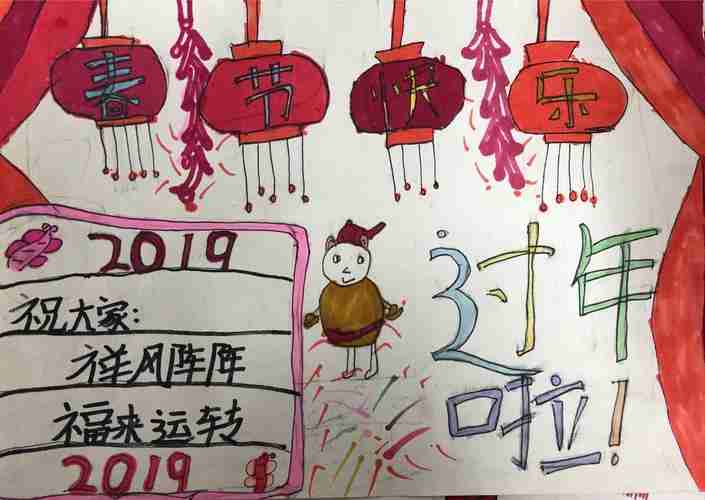 春节快乐
2019
祝大家:
祥风阵阵
福来运转
2019
过年
啦!